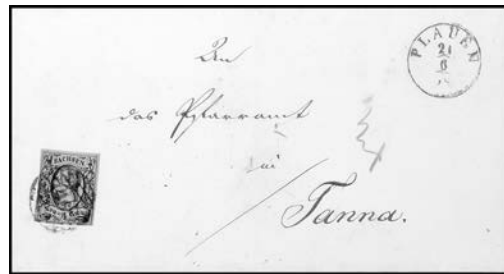 PLAUEN
21
6
An
das Pfarramt
zu
Tanna.
SACHSEN